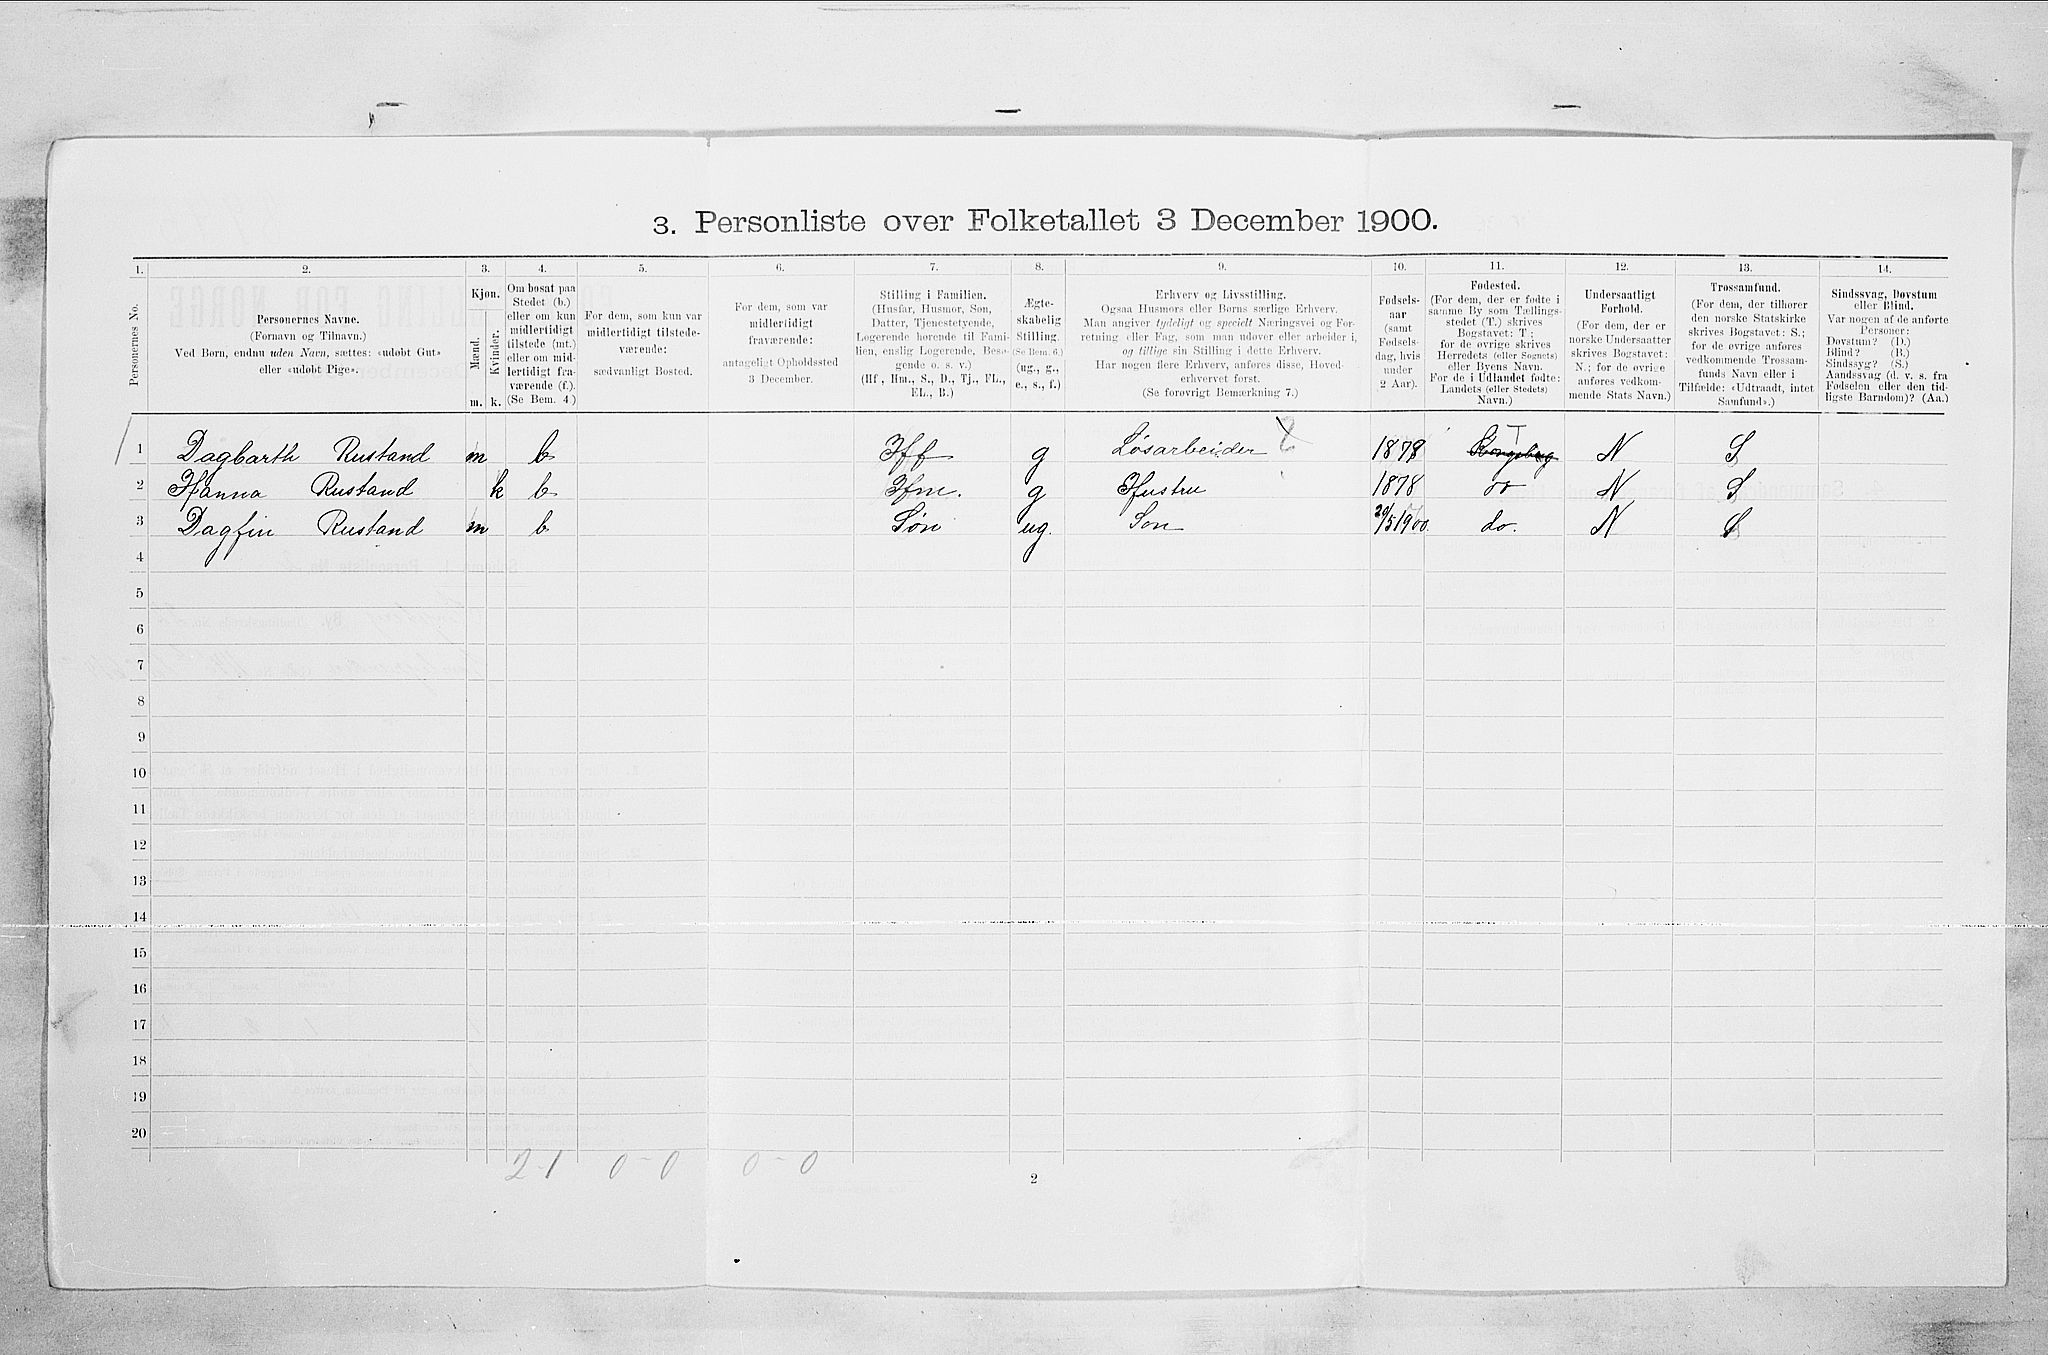 3. Personliste over Folketallet 3 December 1900.
1. 2. 3. 4. 5. 6. 7. 8. 9. 10. 11. 12. 13. 14.
Personernes No.
Personernes Navne.
(Fornavn og Tilnavn.)
Ved Børn, endnu uden Navn, sættes: «udøbt Gut»
eller «udøbt Pige».
Kjøn.
Mænd.
Kvinder.
m. k.
Om bosat paa
Stedet (b.)
eller om kun
midlertidigt
tilstede (mt.)
eller om mid-
lertidigt fra-
værende (f.).
(Se Bem. 4.)
For dem, som kun var
midlertidigt tilstede-
værende:
sædvanligt Bosted.
For dem, som var
midlertidigt
fraværende:
antageligt Opholdssted
3 December.
Stilling i Familien.
(Husfar, Husmor, Søn,
Datter, Tjenestetyende,
Logerende hørende til Fami-
lien, enslig Logerende, Besø-
gende o. s. v.)
(Hf., Hm., S., D., Tj., FL.,
EL., B.)
Ægte-
skabelig
Stilling.
(Se Bem. 6.)
(ug., g.,
e., s., f.)
Erhverv og Livsstilling.
Ogsaa Husmors eller Børns særlige Erhverv.
Man angiver tydeligt og specielt Næringsvei og For-
retning eller Fag, som man udøver eller arbeider i,
og tillige sin Stilling i dette Erhverv.
Har nogen flere Erhverv, anføres disse, Hoved-
erhvervet først.
(Se forøvrigt Bemærkning 7.)
Fødsels-
aar
(samt
Fødsels-
dag, hvis
under
2 Aar).
Fødested.
(For dem, der er fødte i
samme By som Tællings-
stedet (T.) skrives
Bogstavet: T;
for de øvrige skrives
Herredets (eller Sognets)
eller Byens Navn.
For de i Udlandet fødte:
Landets (eller Stedets)
Navn.)
Undersaatligt
Forhold.
(For dem, der er
norske Undersaatter
skrives Bogstavet:
N.; for de øvrige
anføres vedkom-
mende Stats Navn.)
Trossamfund.
(For dem, der tilhører
den norske Statskirke
skrives Bogstavet: S.;
for de øvrige anføres
vedkommende Trossam-
funds Navn eller i
Tilfælde: «Udtraadt, intet
Samfund».)
Sindssvag, Døvstum
eller Blind.
Var nogen af de anførte
Personer:
Døvstum? (D.)
Blind? (B.)
Sindssyg? (S.)
Aandssvag (d. v. s. fra
Fødselen eller den tid-
ligste Barndom)? (Aa.)
1 Dagbarth Rustand m b Hf g Løsarbeider 1878 Kongsberg T N S
2 Hanna Rustand k b Hm. g Hustru 1878 do N S
3 Dagfin Rustand m b Søn ug. Søn 20/5 1900 do. N S
4
5
6
7
8
9
10
11
12
13
14
15
16
17
18
19
20
2-1 0-0 0-0
2